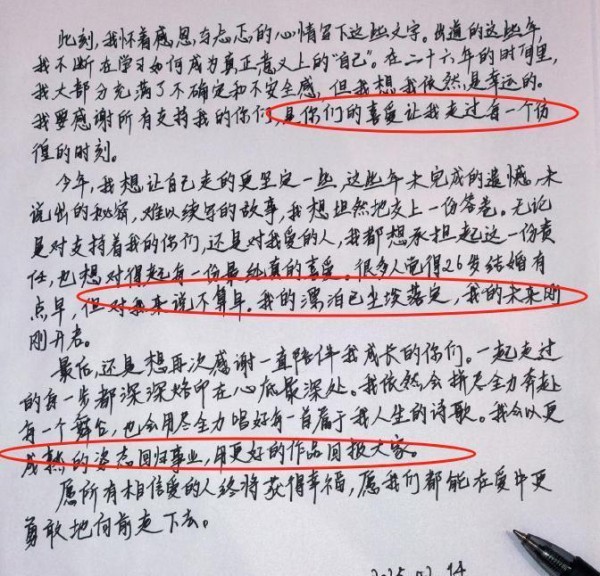 此刻，我怀着感恩与忐忑的心情留下这些文字。出道的这些年，
我不断在学习如何成为真正意义上的“自己”。在二十六年的时间里，
我大部分充满了不确定和不安全感，但我想我依然是幸运的。
我要感谢所有支持我的你们，是你们的喜爱让我走过每一个彷
徨的时刻。
今年，我想让自己走的更坚定一些，这些年未完成的遗憾，未
说出的秘密，难以续写的故事，我想坦然地交上一份答卷。无论
是对支持着我的你们，还是对我爱的人，我都想承担起这一份责
任，也想对得起有一份最纯真的喜爱。很多人觉得26岁结婚有
点早，但对我来说不算早。我的漂泊已尘埃落定，我的未来刚
刚开启。
最后，还是想再次感谢一直陪伴我成长的你们。一起走过
的每一步都深深烙印在心底最深处。我依然会拼尽全力奔赴
每一个舞台，也会用尽全力唱好每一首属于我人生的诗歌。我会以更
成熟的姿态回归事业，用更好的作品回报大家。
愿所有相信爱的人终将获得幸福，愿我们都能在爱中更
勇敢地向前走下去。
2025.02.14